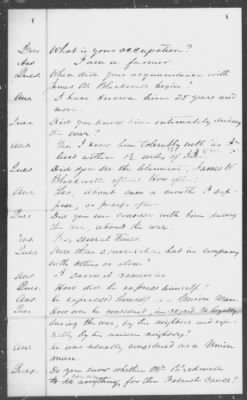 Ques. What is your occupation?
Ans I am a farmer
Ques. When did your acquaintance with
James W. begin?
Ans I have known him 25 years and
more.
Ques. Did you know him intimately during
the war?
Ans. Yes. I knew him tolerably well as I
lived within 1½ miles of him
Ques Did you see the claimant, James W.
often? How often?
Ans Yes; about once a month I sup-
pose, or perhaps oftener
Ques Did you ever converse with him during
the war, about the war,
Ans. Yes, several times.
Ques Were these conversations had in company
with others or alone?
Ans I cannot remember
Ques. How did he express himself?
Ans he expressed himself a Union man
Ques How was he considered, in regard to loyalty
during the war, by his neighbors and espe-
cially by his union neighbors?
Ans he was usually considered as a Union
man
Ques. Do you know whether Mr.
to do anything, for the Federal cause?